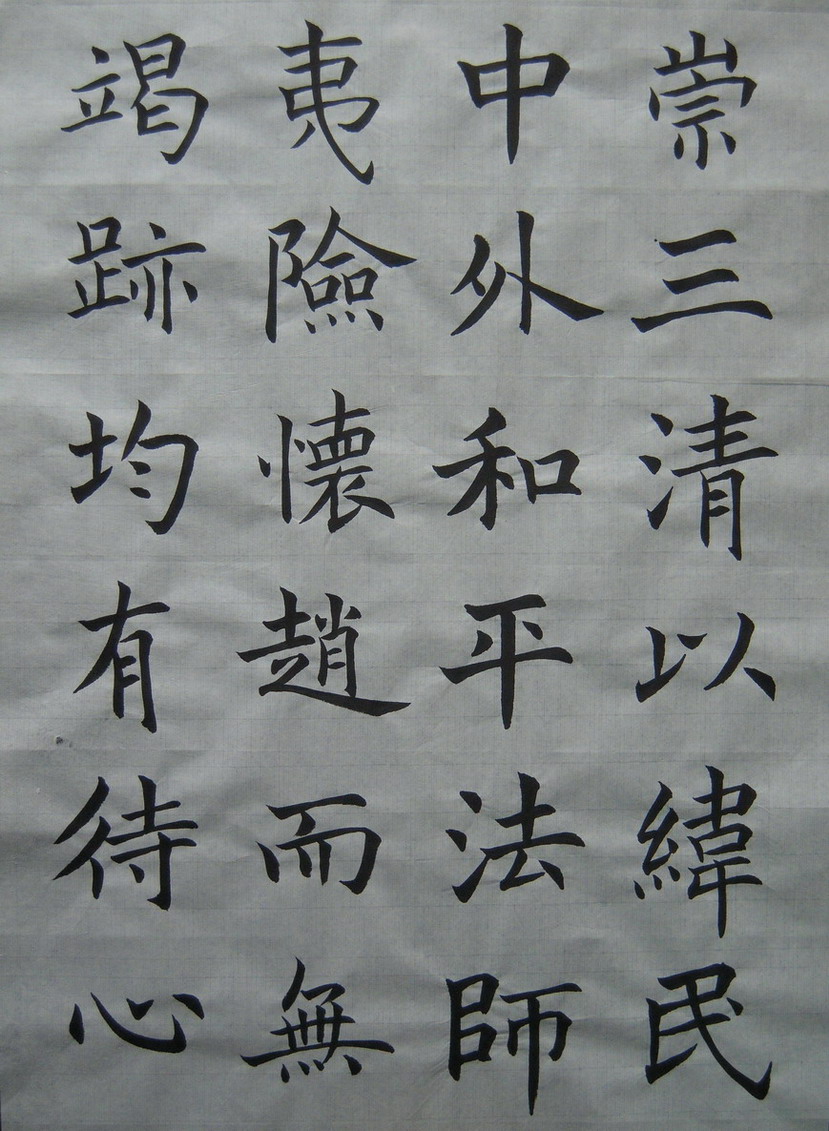 崇三清以緯民
中外和平法師
夷險懐趙而無
竭跡均有待心